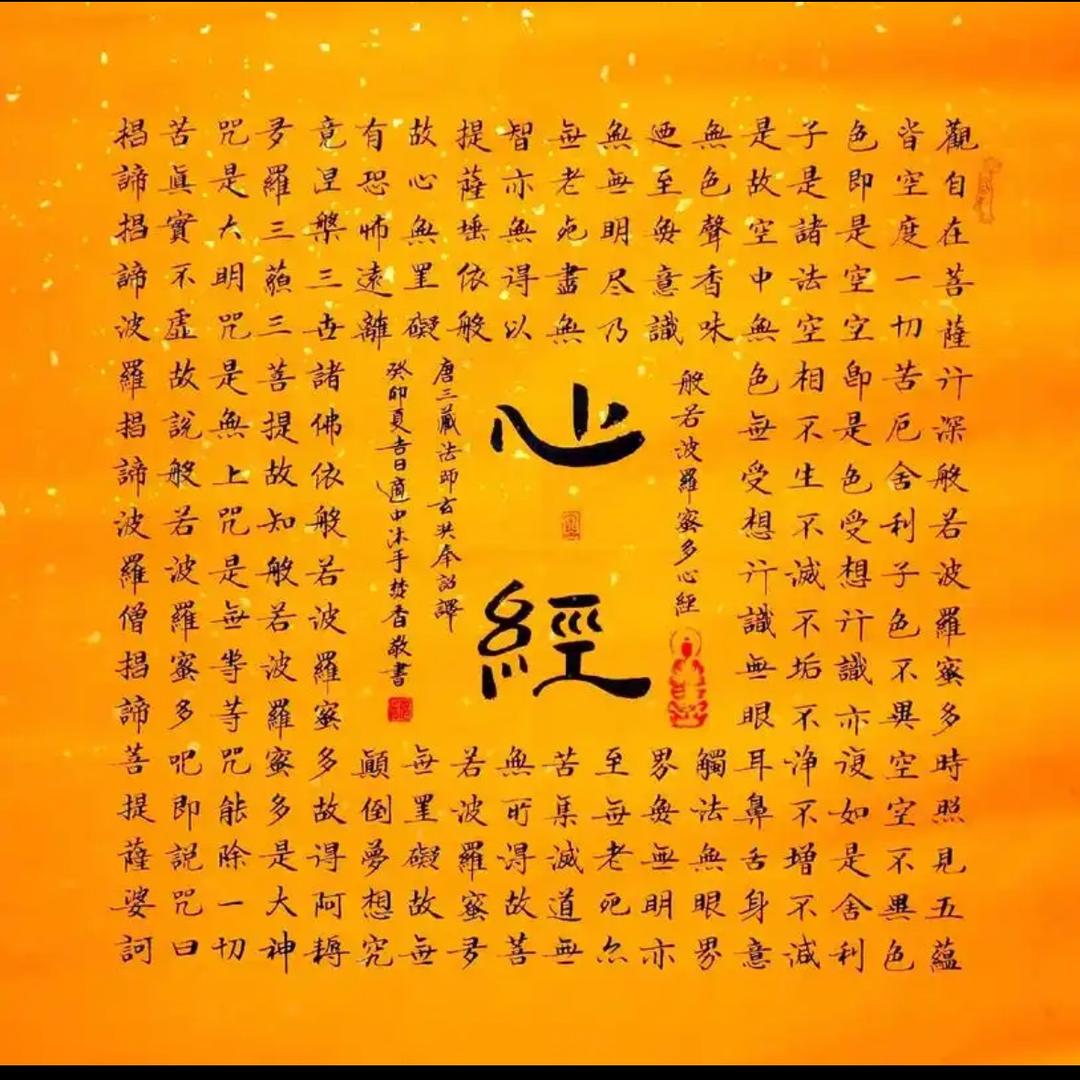 觀自在菩薩行深般若波羅蜜多時照見五蘊
皆空度一切苦厄舍利子色不異空空不異色
色即是空空即是色受想行識亦復如是舍利
子是諸法空相不生不滅不垢不净不增不減
是故空中無色無受想行識無眼耳鼻舌身意
無色聲香味
觸法無眼界
迺至無意識
界無無明亦
無無明尽乃
至無老死亦
無老死盡無
苦集滅道無
智亦無得以
無所得故菩
提薩埵依般
若波羅蜜多
故心無罣礙
無罣礙故無
有恐怖遠離
顛倒夢想究
竟涅槃三世諸佛依般若波羅蜜多故得阿耨
多羅三藐三菩提故知般若波羅蜜多是大神
咒是大明咒是無上咒是無等等咒能除一切
苦眞實不虛故說般若波羅蜜多呪即説咒曰
揭諦揭諦波羅揭諦波羅僧揭諦菩提薩婆訶
般若波羅蜜多心經
心經
唐三藏法師玄奘奉詔譯
癸卯夏吉日適中沐手焚香敬書